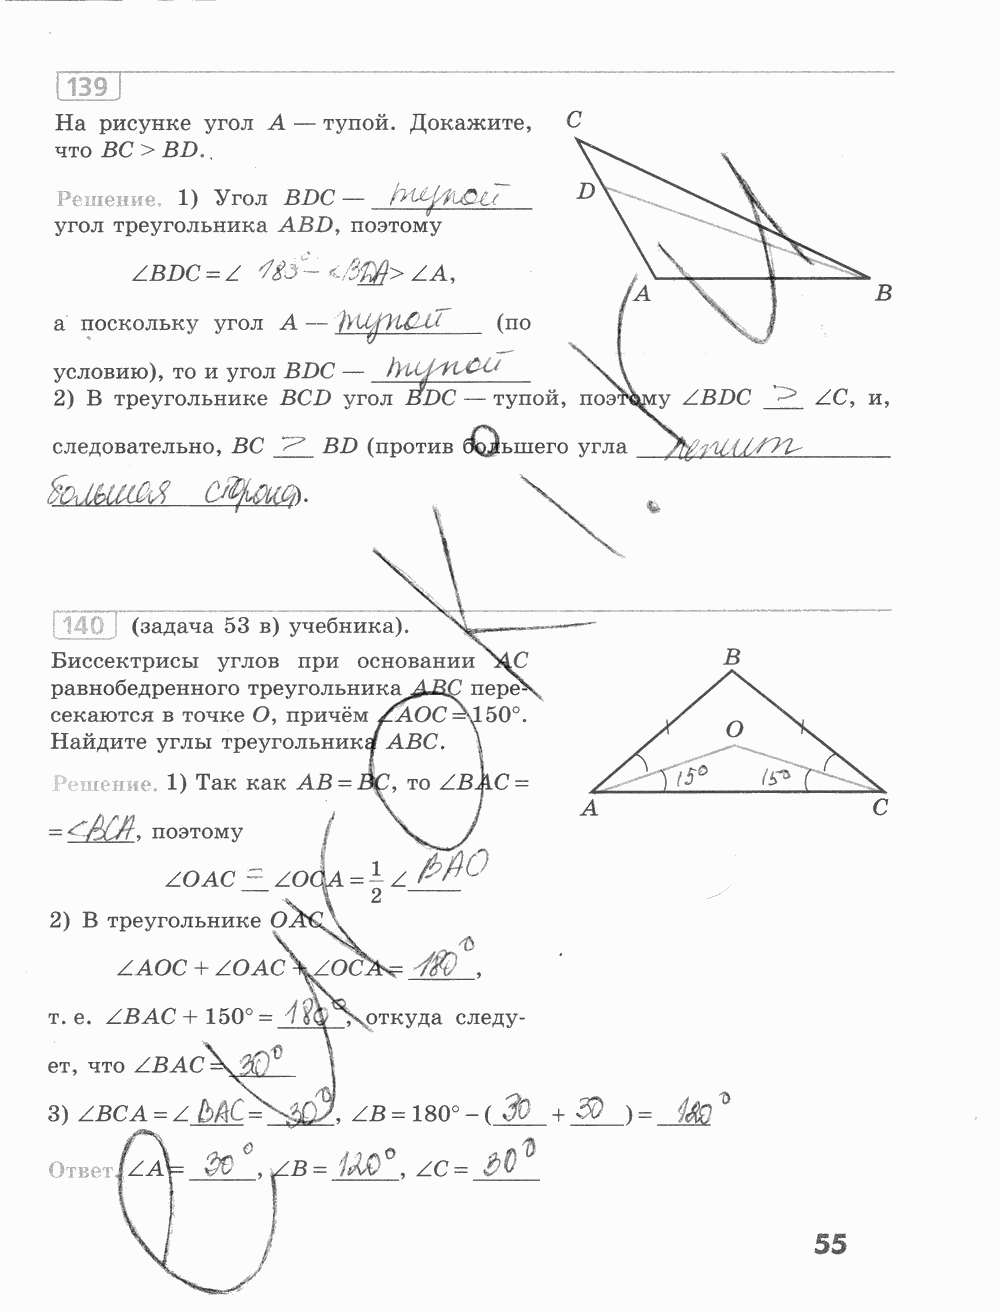 139
На рисунке угол A — тупой. Докажите,
что BC > BD.
Решение. 1) Угол BDC — тупой
угол треугольника ABD, поэтому
∠BDC = ∠ > ∠A,
а поскольку угол A — тупой (по
условию), то и угол BDC — тупой
2) В треугольнике BCD угол BDC — тупой, поэтому ∠BDC > ∠C, и,
следовательно, BC > BD (против большего угла лежит
большая сторона).
C
D
A
B
140 (задача 53 в) учебника).
Биссектрисы углов при основании AC
равнобедренного треугольника ABC пере-
секаются в точке O, причём ∠AOC = 150°.
Найдите углы треугольника ABC.
Решение. 1) Так как AB = BC, то ∠BAC =
= <BCA, поэтому
∠OAC = ∠OCA = 1/2 ∠ BAO
2) В треугольнике OAC
∠AOC + ∠OAC + ∠OCA = 180°,
т. е. ∠BAC + 150° = 180°, откуда следу-
ет, что ∠BAC = 30°
3) ∠BCA = ∠ BAC = 30°, ∠B = 180° − ( 30 + 30 ) = 120°
Ответ. ∠A = 30°, ∠B = 120°, ∠C = 30°
B
O
15° 15°
A
C
55